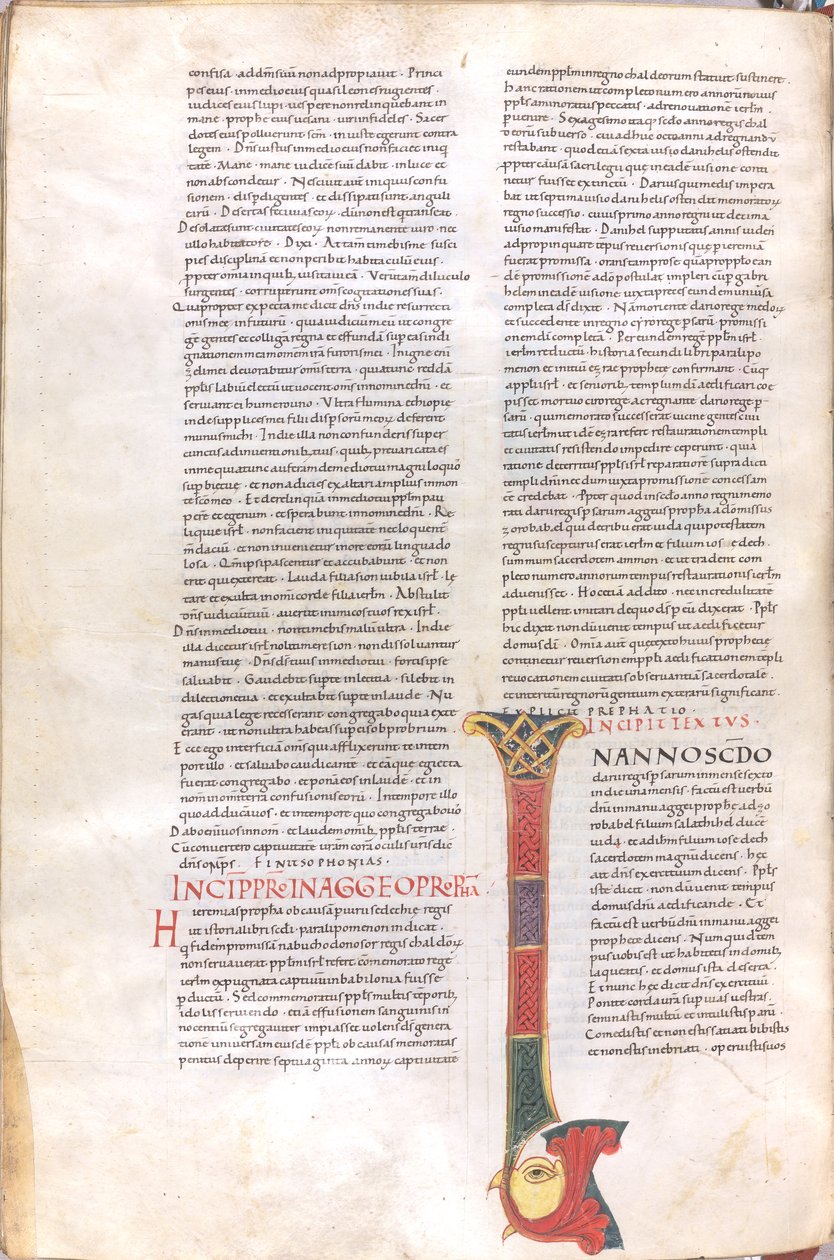 confisa · ad dm̄ suū non adpropiavit · Princi
pes eius · in medio eius quasi leones rugientes ·
iudices eius lupi · vespere non relinquebant in
mane · prophetę eius vesani · viri infideles · Sacer
dotes eius polluerunt scm̄ · iniuste egerunt contra
legem · Dn̄s iustus in medio eius non faciet iniqui
tatē · Mane · mane iudiciū suū dabit · in luce et
non abscondetur · Nescivit aūt iniquus confu
sionem · disp̄di gentes · et dissipati sunt anguli
earū · Deserta feci vias eoꝝ · dū non est qui transeat ·
Desolatę sunt civitates eoꝝ non remanente viro · nec
ullo habitatore · Dixi · Attamen timebis me · susci
pies disciplinā et non peribit habitaculū eius ·
ꝓpter omia in quib; visitavi eā · Verūtam diluculo
surgentes · corruperunt om̄s cogitationes suas ·
Quapropter expecta me dicit dn̄s in die resurrecti
onis meę in futurū · quia iudiciū meū ut congre
gē gentes et colligā regna et effundā sup eas indi
gnationem meam omem irā furoris mei · In igne enī
zeli mei devorabitur omis terra · quia tunc reddā
pplis labiū electū ut vocent om̄s in nomine dn̄i · et
serviant ei humero uno · Ultra flumina ethiopię
inde supplices mei filii dispsorū meoꝝ deferent
munus mihi · In die illa non confunderis super
cunctis adinventionib; tuis · quib; prevaricata es
in me quia tunc auferam de medio tui magniloquos
supbię tuę · et non adicies exaltari amplius in mon
te sc̄o meo · Et derelinquā in medio tui pplm pau
perē et egenum · et sperabunt in nomine dn̄i · Re
liquię isrl̄ · non facient iniquitatē nec loquent
mdaciū · et non invenietur in ore eorū lingua do
losa · Qm̄ ipsi pascentur et accubabunt · et non
erit qui exterreat · Lauda filia sion iubila isrl̄ · lę
tare et exulta in omi corde filia ierlm · Abstulit
dn̄s iudiciū tuū · avertit inimicos tuos rex isrl̄ ·
Dn̄s in medio tui · non timebis malū ultra · In die
illa dicetur isrl̄ noli timere sion · non dissolvantur
manus tuę · Dn̄s d̄s tuus in medio tui · fortis ipse
salvabit · Gaudebit sup te in lętitia · silebit in
dilectione tua · et exultabit sup te in laude · Nu
gas qui a lege recesserant congregabo quia ex te
erant · ut non ultra habeas sup eis obprobrium ·
Ecce ego interficiā om̄s qui afflixerunt te in tem
pore illo · et salvabo claudicantē · et eā quę eiecta
fuerat congregabo · et ponā eos in laudē · et in
nom̄ in omi terra confusionis eorū · In tempore illo
quo adducā vos · et in tempore quo congregabo vos
Dabo enī vos in nom̄ · et laudem omib; pplis terrae ·
Cū convertero captivitatē vr̄am corā oculis vr̄is dicit
dn̄s omps · FINIT SOPHONIAS ·
INCIP̄ PRO IN AGGEO PROPHA ·
Hieremias propha ob causā piurii sedechię regis
ut istoria libri scdi · paralipomenon indicat ·
q fidem promissā nabuchodonosor regis chaldoꝝ
non servaverat pplm isrl̄ refert comemorato rege
ierlm expugnata captivū in babilonia fuisse
pductū · Sed commemoratus pplis multis teporib;
idolis serviendo · etiā effusionem sanguinis in
nocentiū segregaviter impia esset volens ds genera
tionē universam eiusdē ppli ob causas memoratas
penitus deperire septuaginta annoꝝ captivitatē
eundem pplm in regno chaldeorum statuit sustinere ·
Hanc rationem ut completo numero annorū novus
ppls a minoratus peccatis · ad renovationē ierlm ·
pveniret · Sexagesimo itaq; sedo anno regis chal
deorū subverso · cui adhuc octo anni ad regnandū
restabant · quod etiā sexta visio danihelis ostendit
ꝓpter causā sacrilegii quę in eadē visione conti
netur fuisset extinctū · Darius qui medis impera
bat ut septima visio danihelis ostendit memoratoꝝ
regno successio · cuius primo anno regni ut decima
visio manifestat · Danihel supputatis annis viden
adpropinquare tēpus reversionis quę p ieremiā
fuerat promissa · orans tam prose quā pro pplo ean
dē promissionē a dō postulat impleri cū p gabri
helem in eadē visione iuxta preces eiusdem universa
completa ds dixit · Nā moriente dario rege medoꝝ
et succedente in regno cyro rege psarū · promissi
onem di completā · Per eundem regē pplm isrl̄
ierlm reductū · historia secundi libri paralipo
menon et initiū ezrae prophetę confirmant · Cūq;
a ppli isrl̄ · et seniorib; templum di aedificari coe
pisset mortuo cyro rege ac regnante dario rege p
sarū · qui memorato successerat vicinę gentes civi
tatis ierlm ut idē ezra refert restaurationem templi
et civitatis resistendo impedire ceperunt · quia
ratione deterritus ppls isrl̄ reparationē supra dicti
templi dn̄i necdum iuxta promissionē concessam
eē credebat · Ppter quod in scdo anno regni memo
rati darii regis psarum aggeus propha a dō missus
zorobabel qui de tribu erat iuda qui potestatem
regni suscepturus erat ierlm et filium iosedech ·
summum sacerdotem ammon · et ut tradent com
pleto numero annorum tempus restaurationis ierlm
advenisset · Hoc etiā addito · ne incredulitatē
ppli vellent imitari de quo ds p eū dixerat · Ppls
hic dixit nondū venit tempus ut aedificetur
domus di · Omia aūt quę texto huius prophetię
continetur reversionem ppli aedificationem tēpli
revocationem civitatis observantiā sacerdotale ·
et interitū regnorū gentium exterarū significant ·
EXPLICIT PREPHATIO ·
INCIPIT TEXTUS ·
IN ANNO SCDO
darii regis psarum in mense sexto
in die una mensis · factū est verbū
dn̄i in manu aggei prophę ad zo
robabel filium salathihel ducē
iuda · et ad ihm filium iosedech
sacerdotem magnū dicens · hęc
ait dn̄s exercituum dicens · Ppls
iste dicit · nondū venit tempus
domus dn̄i aedificandę · Et
factū est verbū dn̄i in manu aggei
prophetę dicens · Numquid tem
pus vobis est ut habitetis in domib;
laqueatis · et domus ista deserta ·
Et nunc hęc dicit dn̄s exercituū ·
Ponite corda vr̄a sup vias vestras ·
seminastis multū et intulistis parū ·
Comedistis et non estis satiati bibistis
et non estis inebriati · operuistis vos